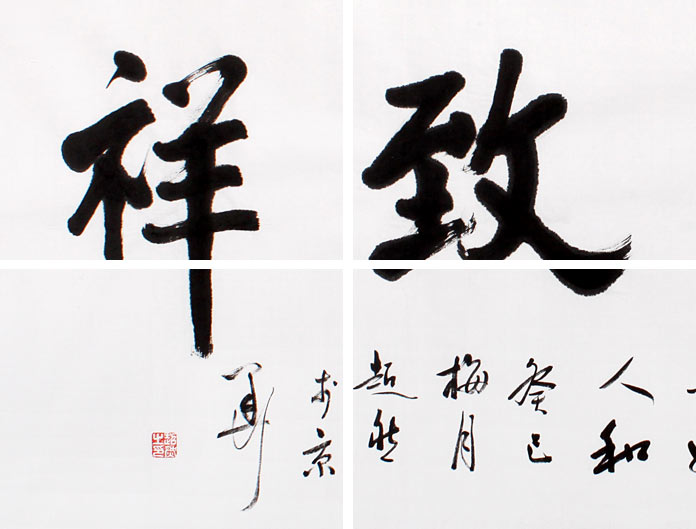 致祥
人和
癸巳
梅月
超然
於京